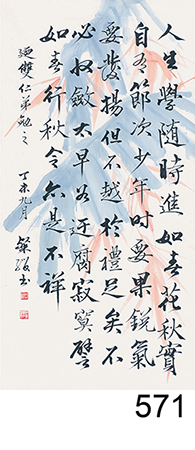 人生學隨時進如春花秋實
自有節次少年時要果銳氣
要發揚但不越於禮足矣不
必收斂太早若迂腐寂寞譬
如春行秋令亦是不祥
雙仁弟勉之
丁未九月
書
571